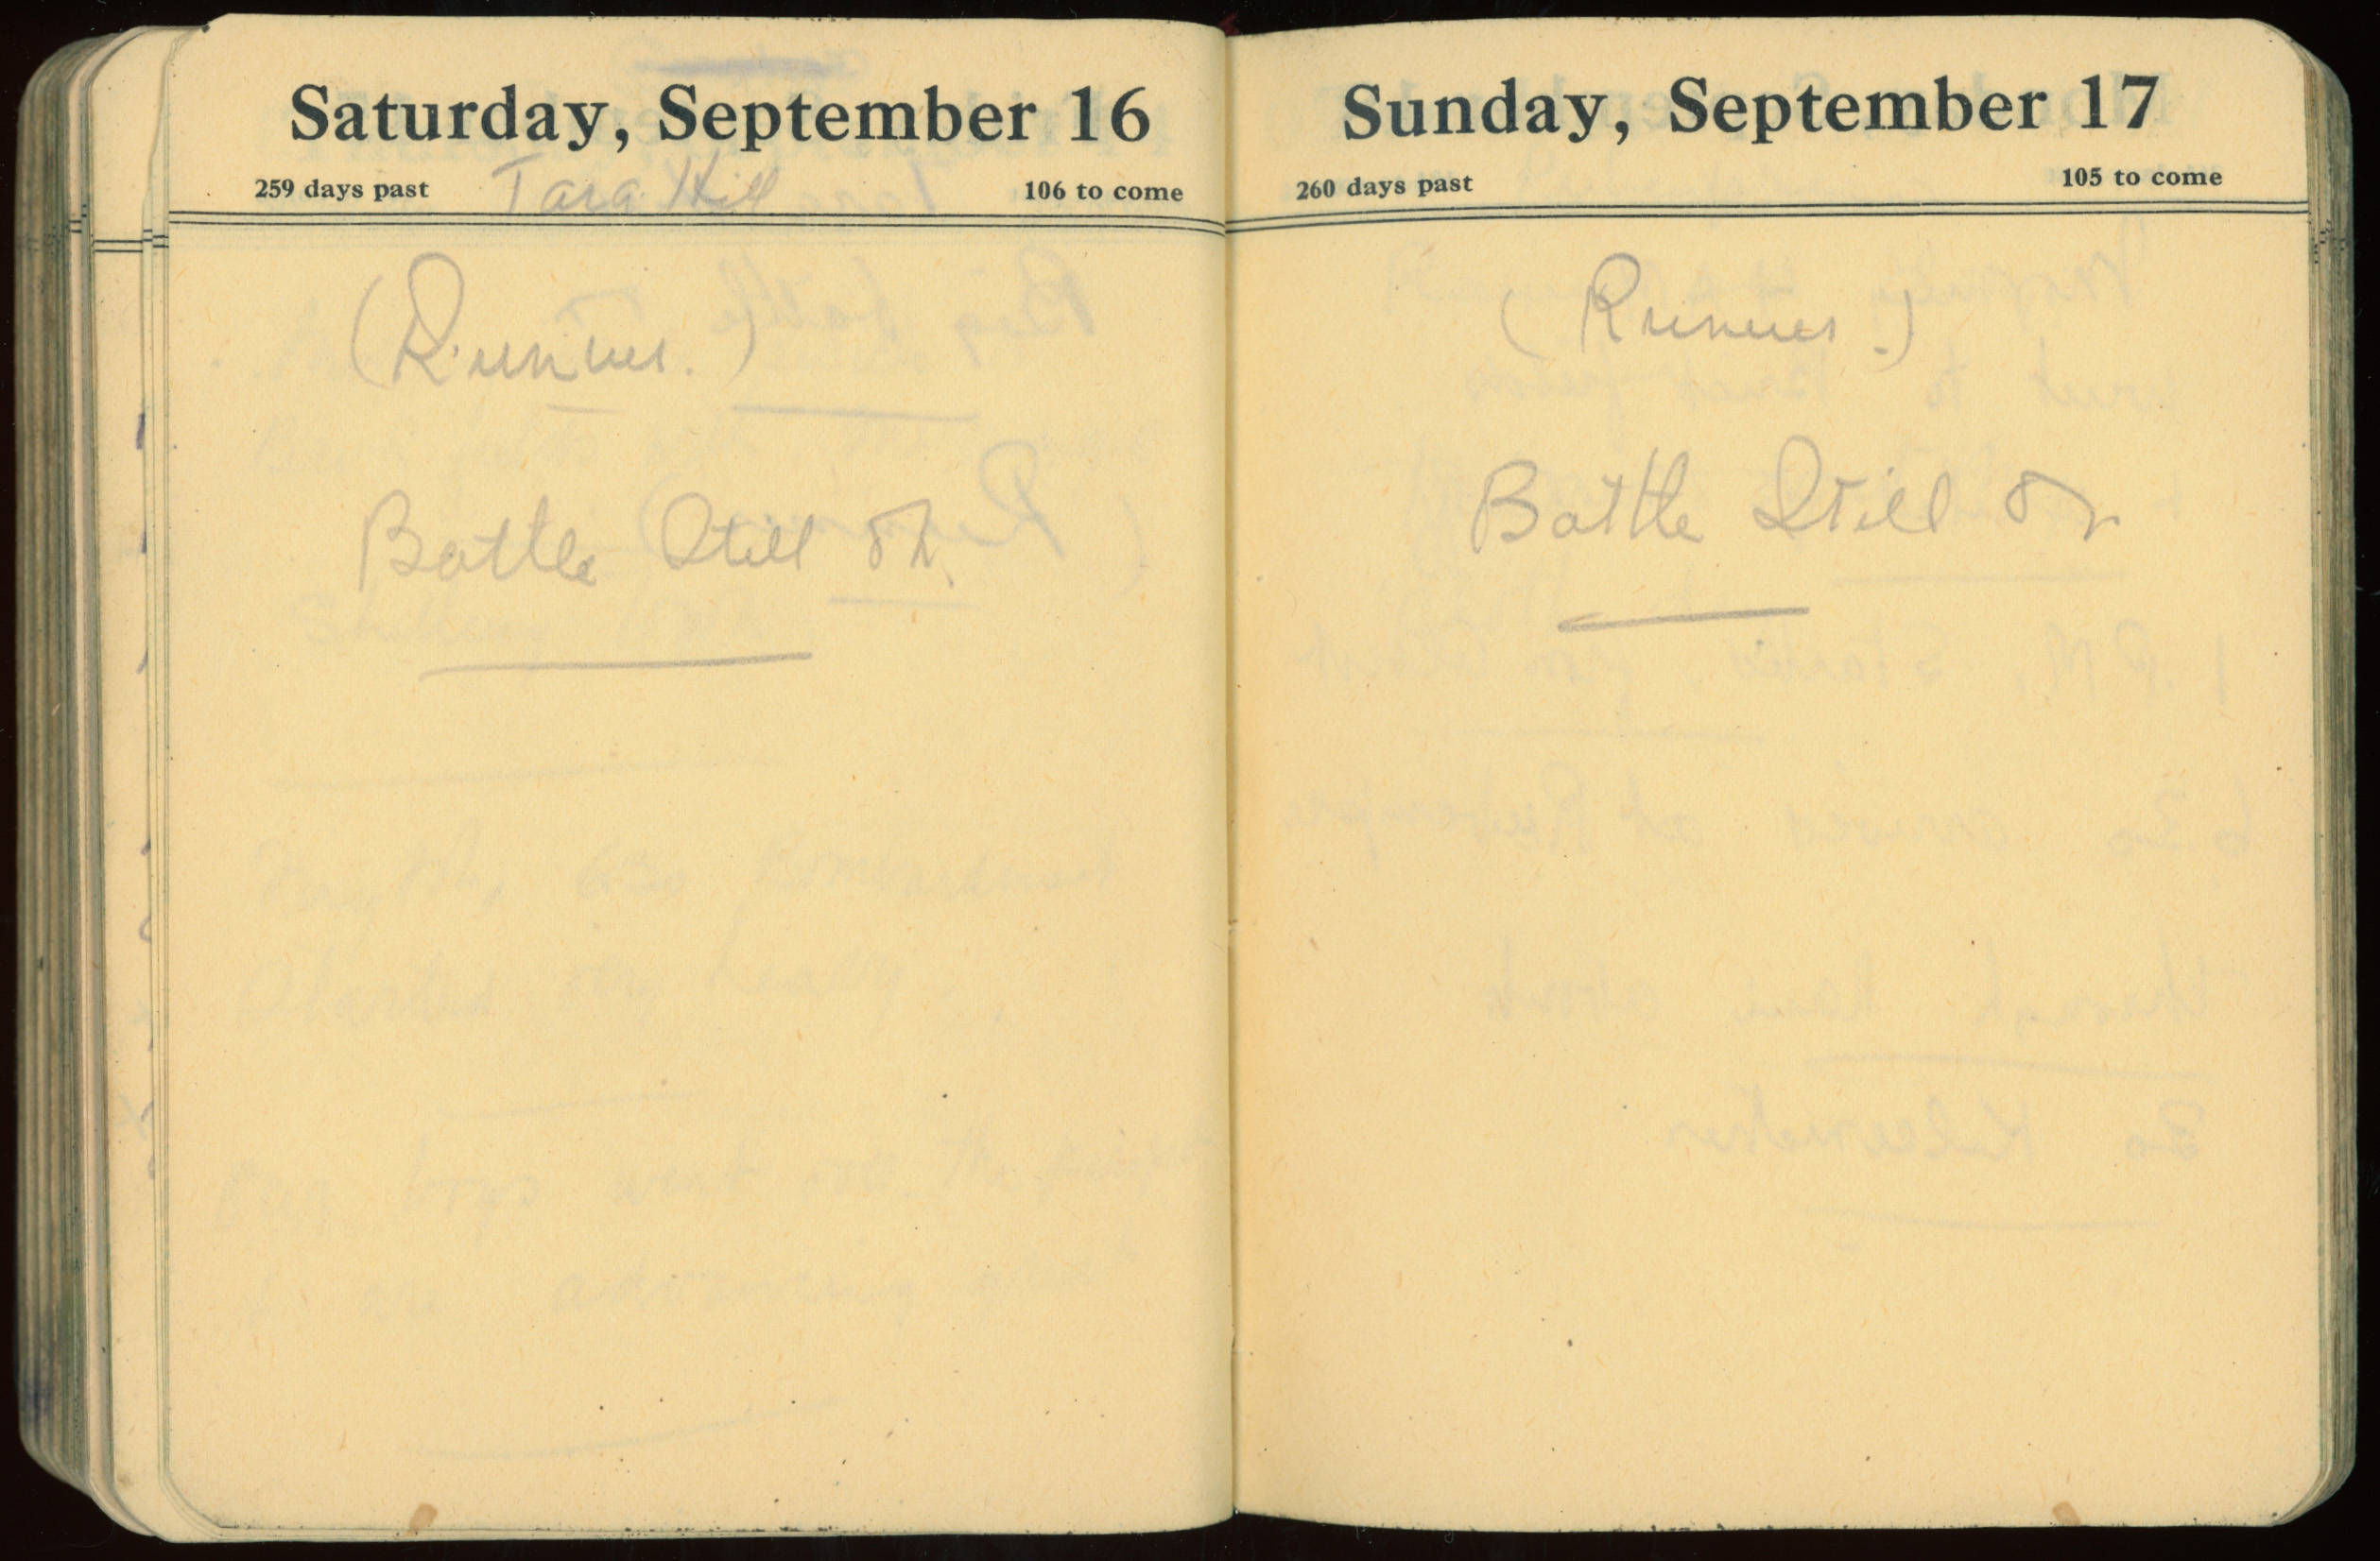 Saturday, September 16
259 days past Tara Hill 106 to come
(Runner.)
Battle Still on.
Sunday, September 17
260 days past 105 to come
(Runner.)
Battle Still on